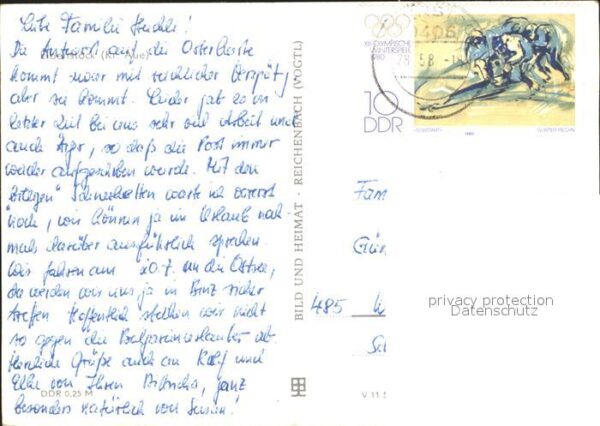 Liebe Familie
Die Antwort auf die Osterkarte
Eibenstock (Kr. Aue)
kommt zwar mit reichlicher Verspätg,
aber sie kommt. Leider gab es in
letzter Zeit bei uns sehr viel Arbeit und
auch Ärger, so daß die Post immer
wieder aufgeschoben wurde. Mit den
warte ich vorerst
noch, wir können ja im Urlaub noch-
mals darüber ausführlich sprechen.
Wir fahren am 20.7. an die Ostsee,
da werden wir uns ja in Binz sicher
treffen. Hoffentlich stechen wir nicht
so gegen die ab.
Herzliche Grüße auch an Ralf und
Elke von Ihren ganz
besonders natürlich von Susann!
DDR 0,25 M
BILD UND HEIMAT · REICHENBACH (VOGTL)
V 11
XIII. OLYMPISCHE
WINTERSPIELE
1980
10
DDR
1980
Fam
Gün
485
privacy protection
Datenschutz